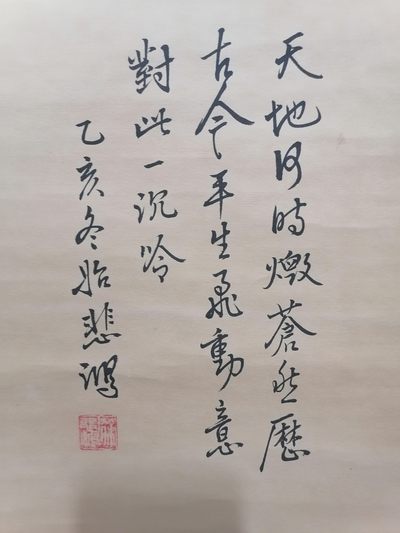 天地何時燬蒼然歷
古今平生飛動意
對此一沉吟
乙亥冬始悲鴻